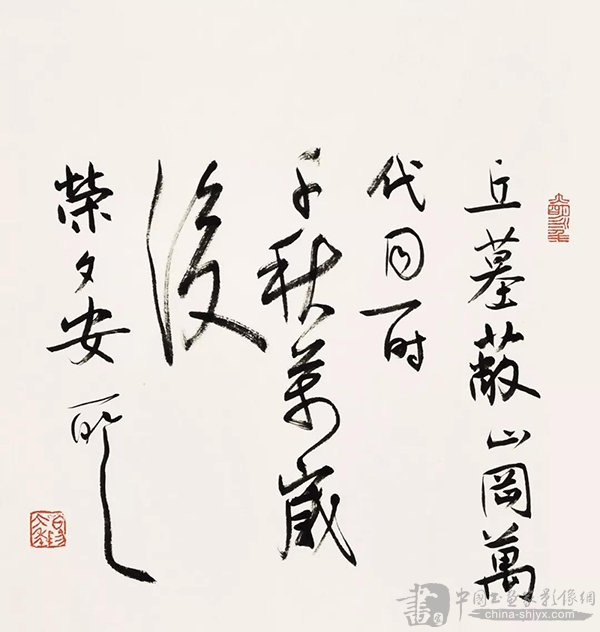 丘墓蔽山岡萬
代同一时
千秋萬歲
後
榮名安所之
書
中國书画家影像網
china-shjyx.com